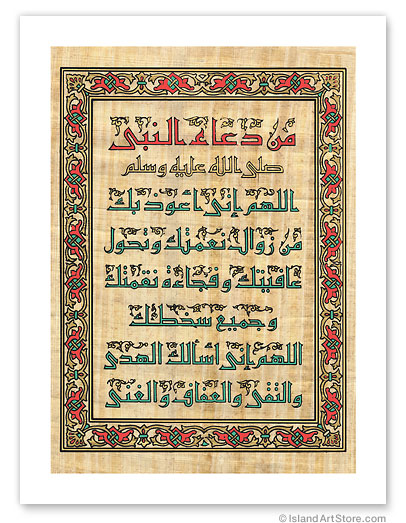 من دعاء النبي
صلى الله عليه وسلم
اللهم إني أعوذ بك
من زوال نعمتك وتحول
عافيتك وفجاءة نقمتك
وجميع سخطك
اللهم إني أسألك الهدى
والتقى والعفاف والغنى
© IslandArtStore.com